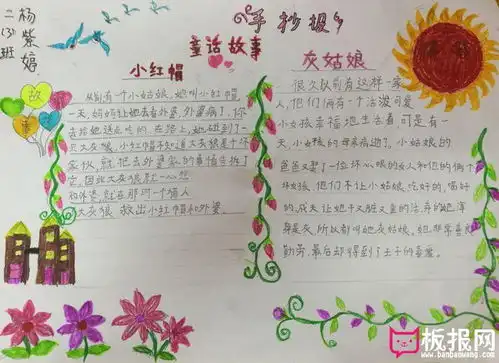 杨紫婷
二(3)班
手抄报
童话故事
故
事
小红帽
从前有个小姑娘,她叫小红帽
一天,妈妈让她去看外婆,外婆病了,你
去给她送点吃的,在路上,她碰到了一
只大灰狼,小红帽不知道大灰狼是个坏
家伙,就把去外婆家的事情告诉了
它,因此大灰狼
和外婆,就在那 一个猎人
大灰狼 救出小红帽和外婆。
灰姑娘
很久以前有这样一家
人,他们俩有一个活泼可爱
小女孩幸福地生活着可是有一
天,小女孩的母亲病逝了,小姑娘的
爸爸又娶了一位坏心眼的女人和他的俩个
坏女孩,他们不让小姑娘吃好的,喝好
的,成天让她干又脏又重的活,弄的她浑
身是灰,所以都叫她灰姑娘,她非常善良
勤劳,最后却得到了王子的喜爱。
板报网
www.banbaowang.com